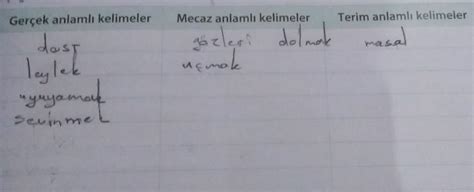 Gerçek anlamlı kelimeler Mecaz anlamlı kelimeler Terim anlamlı kelimeler
dost gözleri dolmak masal
leylek uçmak
uyuyamak
sevinmek